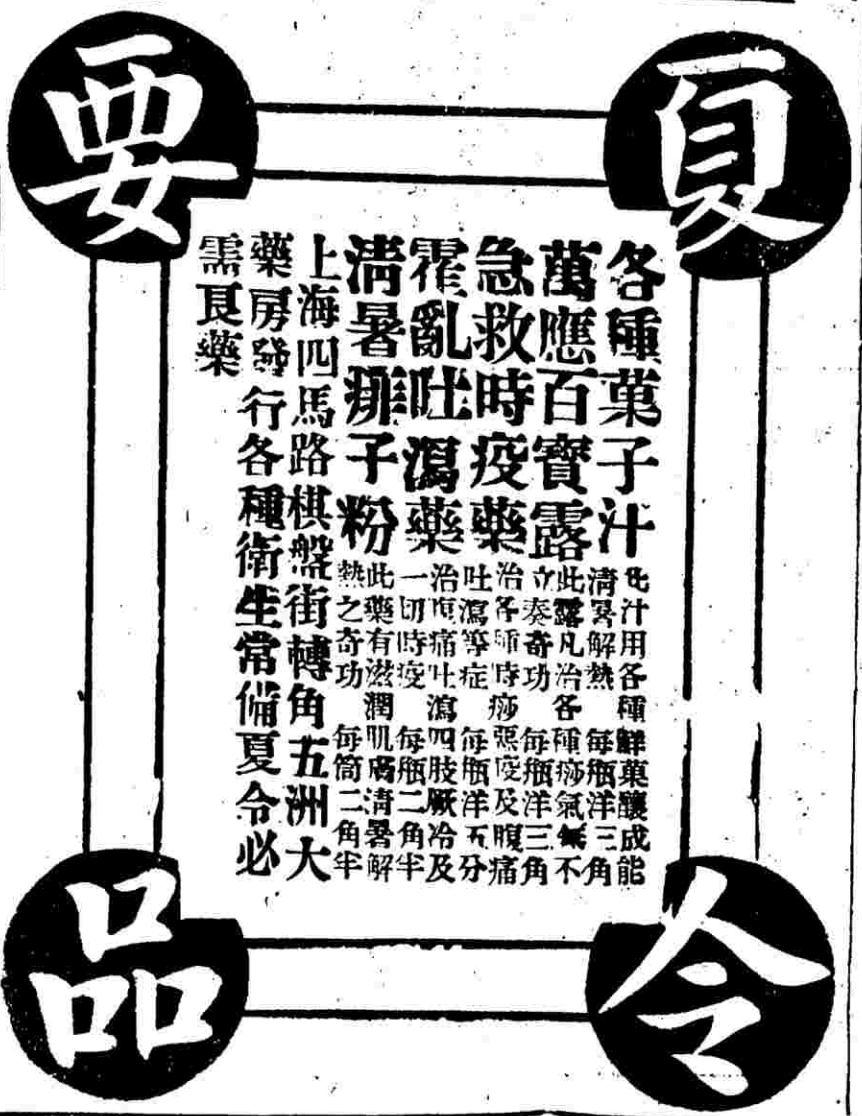 夏令要品
各種菓子汁 此汁用各種鮮菓釀成能清暑解熱 每瓶洋三角
萬應百寶露 此露凡治各種痧氣無不立奏奇功 每瓶洋三角
急救時疫藥 治各種時痧惡疫及腹痛吐瀉等症 每瓶洋五分
霍亂吐瀉藥 治腹痛吐瀉四肢厥冷及一切時疫 每瓶二角半
清暑痱子粉 此藥有滋潤肌膚清暑解熱之奇功 每筒二角半
上海四馬路棋盤街轉角五洲大
藥房發行各種衛生常備夏令必
需良藥